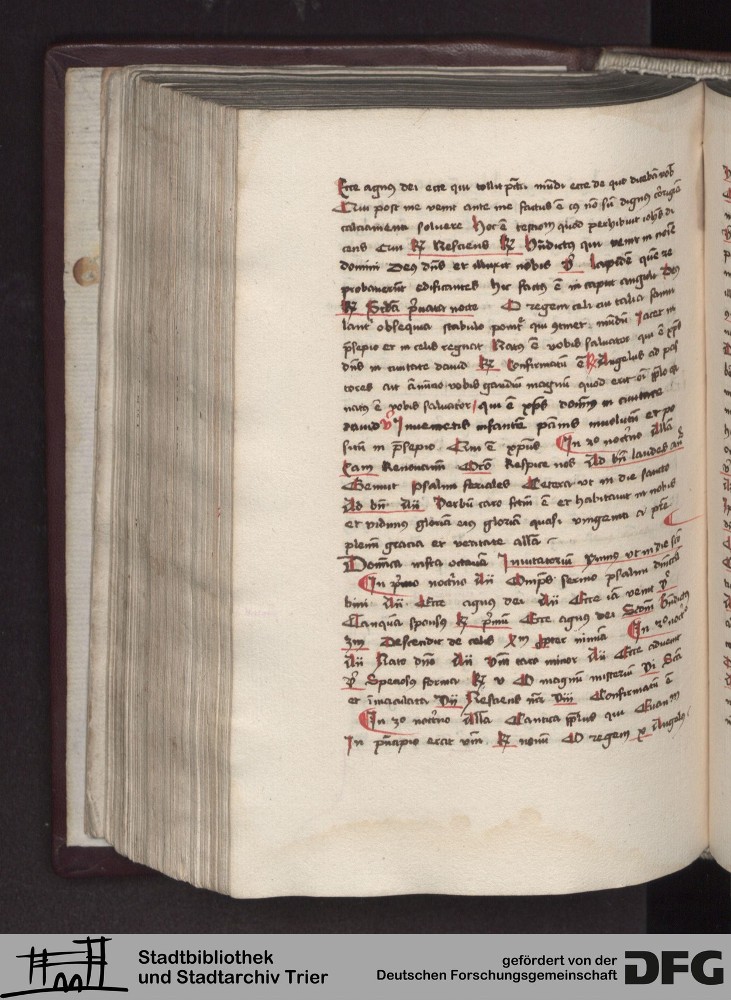 Ecce agnus dei ecce qui tollit pctā mūdi ecce de quo dicebā vob
Qui post me venit ante me factus ē cuius nō sū dignus corrigiā
calciamenti soluere Hoc ē testimoniū quod perhibuit iohēs di
cens Qui ℟ Nesciens ℟ Bn̄dictus qui venit in noīe
domini Deus dn̄s et illuxit nobis ℣ lapidē quē re
probauerūt edificantes hic factus ē in caput anguli Deus
℟ Scd̄a priuata nocte O regem celi cui talia famu
lant᷑ obsequia stabulo ponit᷑ qui 9tinet mundū Iacet in
p̄sepio et in celis regnat Natus ē vobis saluator qui ē xp̄s
dn̄s in ciuitate dauid ℟ Confirmatū ē ℟ Angelus ad pas
tores ait annūcio vobis gaudiū magnū quod erit oī pplo qꝛ
natus ē vobis saluator qui ē xp̄s domīs in ciuitate
dauid ℣ Inuenietis infantē pannis inuolutū et po
situm in p̄sepio Qui ē xpūs In 3o noct̄no All̄a
Eam Renouamini Oro Respice nos Ad bn̄ laudes an̄
Genuit psalmi feriales Cetera vt in die sancto
Ad bn̄ An̄ Verbū caro fctm̄ ē et habitauit in nobis
et vidimus gloriā eius gloriā quasi vnigeniti a pr̄e
plenū gracia et veritate all̄a
Domīca infra octauā Inuitatoriū ymnus vt in die scō
In p̄mo noct̄no An̄ Omīps sermo psalmi
bini An̄ Ecce agnus dei An̄ Ecce iā venit ℣
Tanquā sponsus ℟ p̄mū Ecce agnus dei Scdm̄ Bn̄dictus
3m Descendit de celis pter nimiā In 2o noct̄o
An̄ Nato dn̄o An̄ Vm̄ caro minor An̄ Ecce aduenit
℣ Speciosus forma ℟ v O magnū misteriū vi Scā
et īmaculata vii Nesciens mr̄ viii Confirmatū ē
In 3o noct̄no All̄a Cantica pplus qui Ewan
In p̄ncipio erat vm̄ ℟ nonū O regem Angelus
Stadtbibliothek
und Stadtarchiv Trier
gefördert von der
Deutschen Forschungsgemeinschaft
DFG